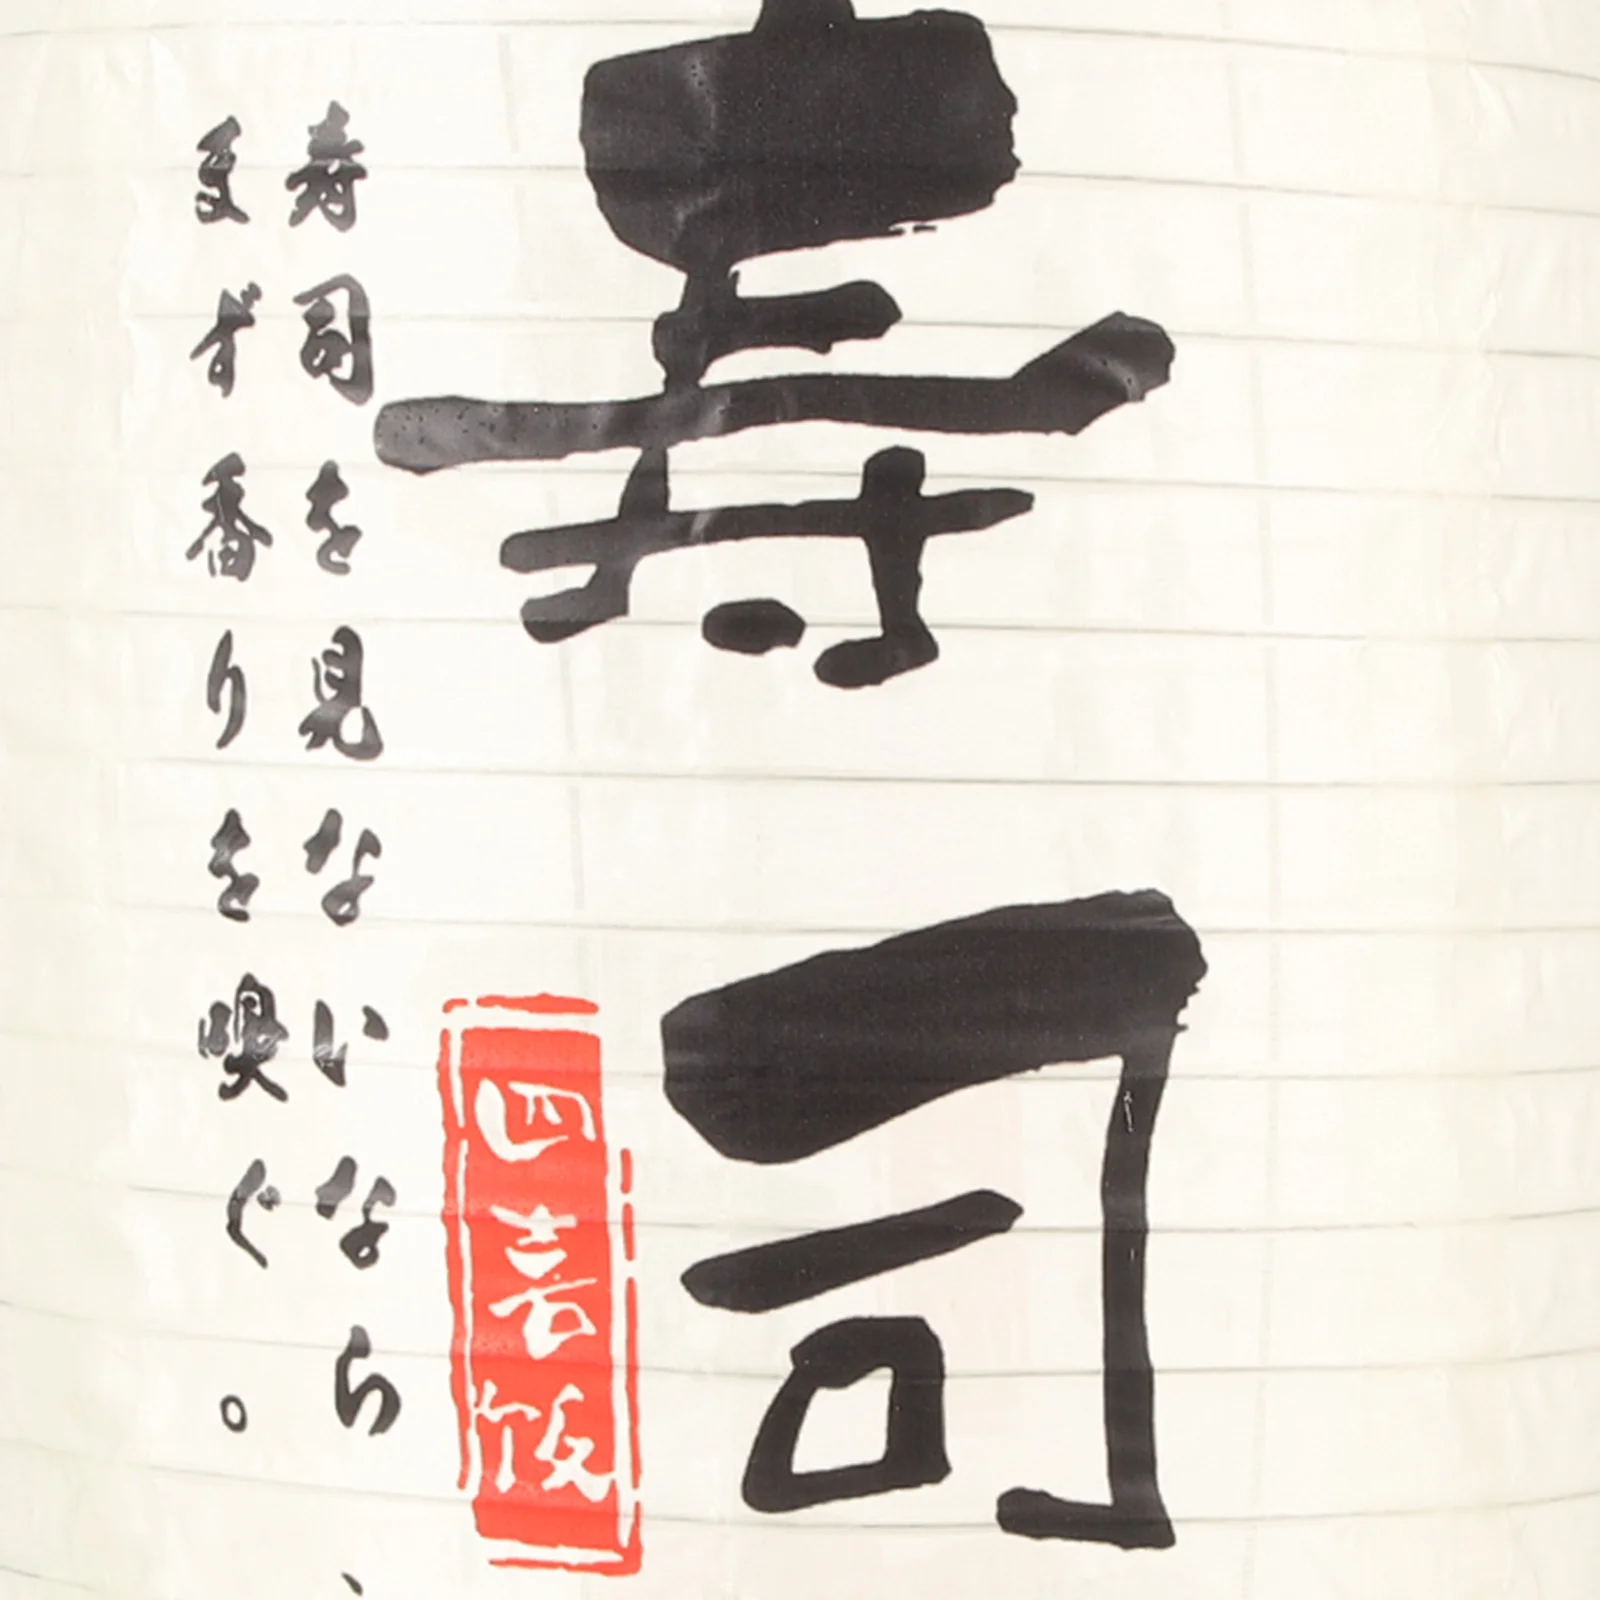 寿司
四喜飯
寿司を見ないなら、
まず番りを嗅ぐ。